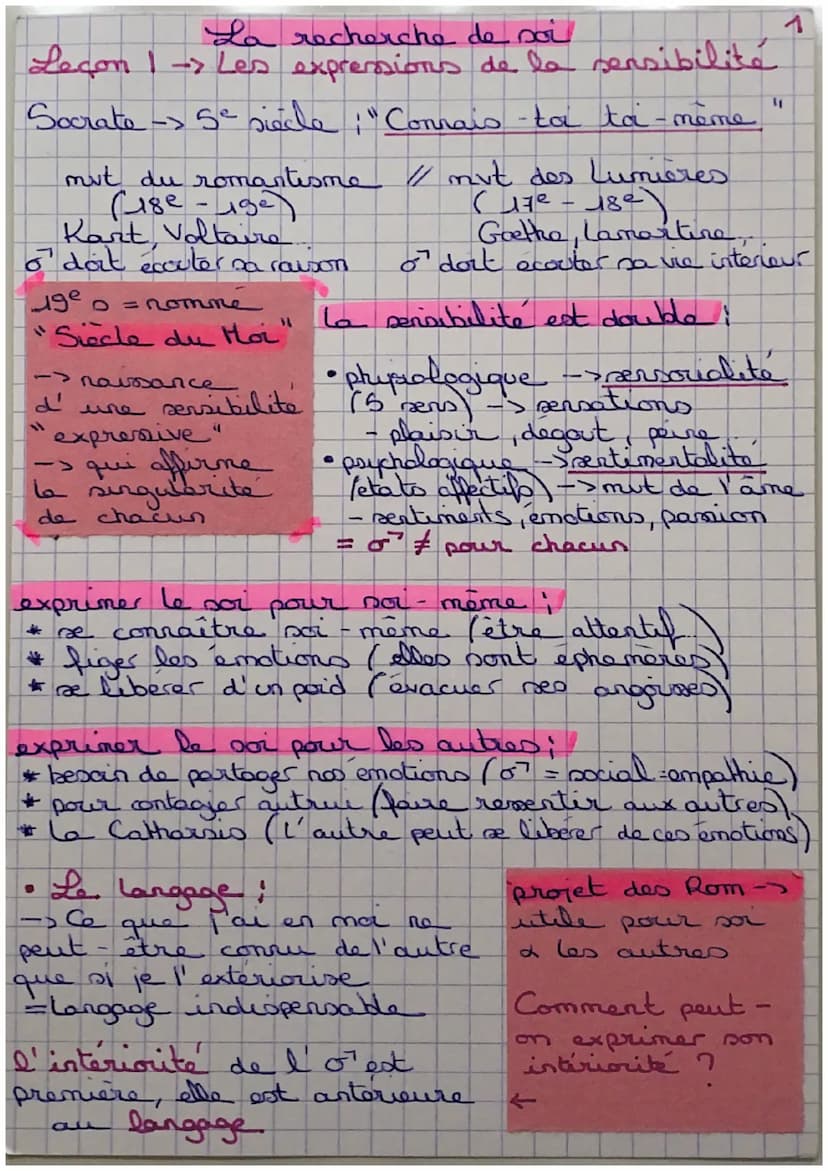 1
La recherche de soi
Leçon 1 -> Les expressions de la sensibilité
Socrate -> 5e siècle : "Connais-toi toi-même"
mvt du romantisme // mvt des Lumières
(18e - 19e) (17e - 18e)
Kant, Voltaire... Goethe, Lamartine...
♂ doit écouter sa raison ♂ doit écouter sa vie intérieur
19e s = nommé
"Siècle du Moi"
-> naissance
d'une sensibilité
"expressive"
-> qui affirme
la singularité
de chacun
La sensibilité est double :
• physiologique -> sensorialité
(5 sens) -> sensations
- plaisir, dégout, peine...
• psychologique -> sentimentalité
(états affectifs) -> mvt de l'âme
- sentiments, émotions, passion
= ♂ ≠ pour chacun
exprimer le soi pour soi-même :
* se connaître soi-même (être attentif...)
* figer les émotions (elles sont éphémères)
* se libérer d'un poid (évacuer ses angoisses)
exprimer le soi pour les autres :
* besoin de partager nos émotions (♂ = social = empathie)
* pour contagier autrui (faire ressentir aux autres)
* La Catharsis (L'autre peut se libérer de ces émotions)
• Le langage :
-> Ce que j'ai en moi ne
peut-être connu de l'autre
que si je l'extériorise
= Langage indispensable
l'intériorité de l'♂ est
première, elle est antérieure
au langage
projet des Rom ->
utile pour soi
& les autres
Comment peut-
on exprimer son
intériorité ?
←